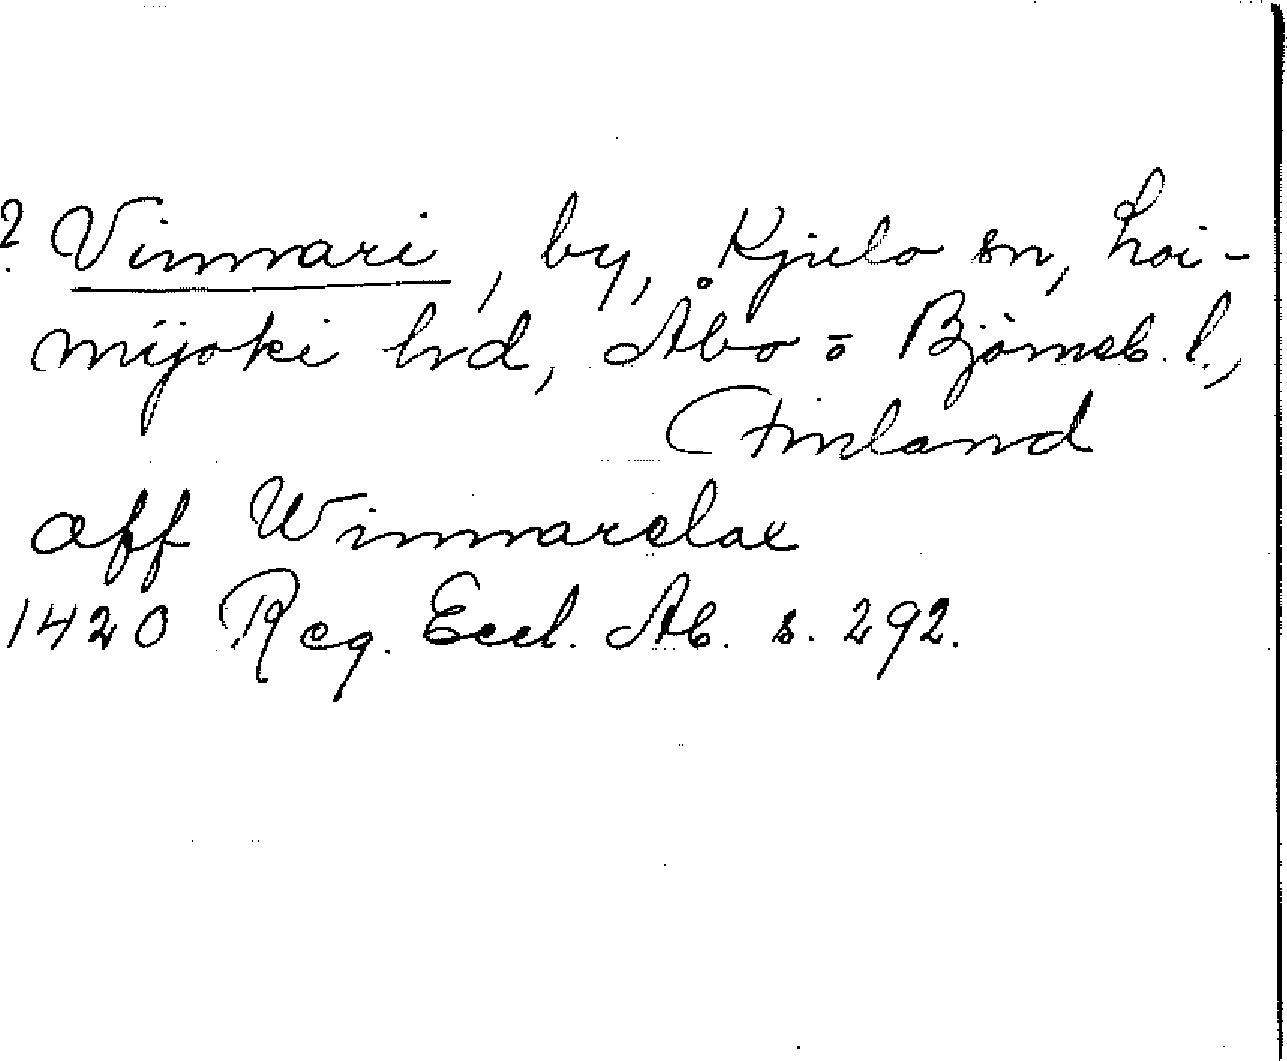 ? Vinnari, by, Kjulo sn, Loi-
mijoki hd, Åbo=Björneb. l.,
Finland
aff Winnarelae
1420 Reg. Eccl. Ab. s. 292.